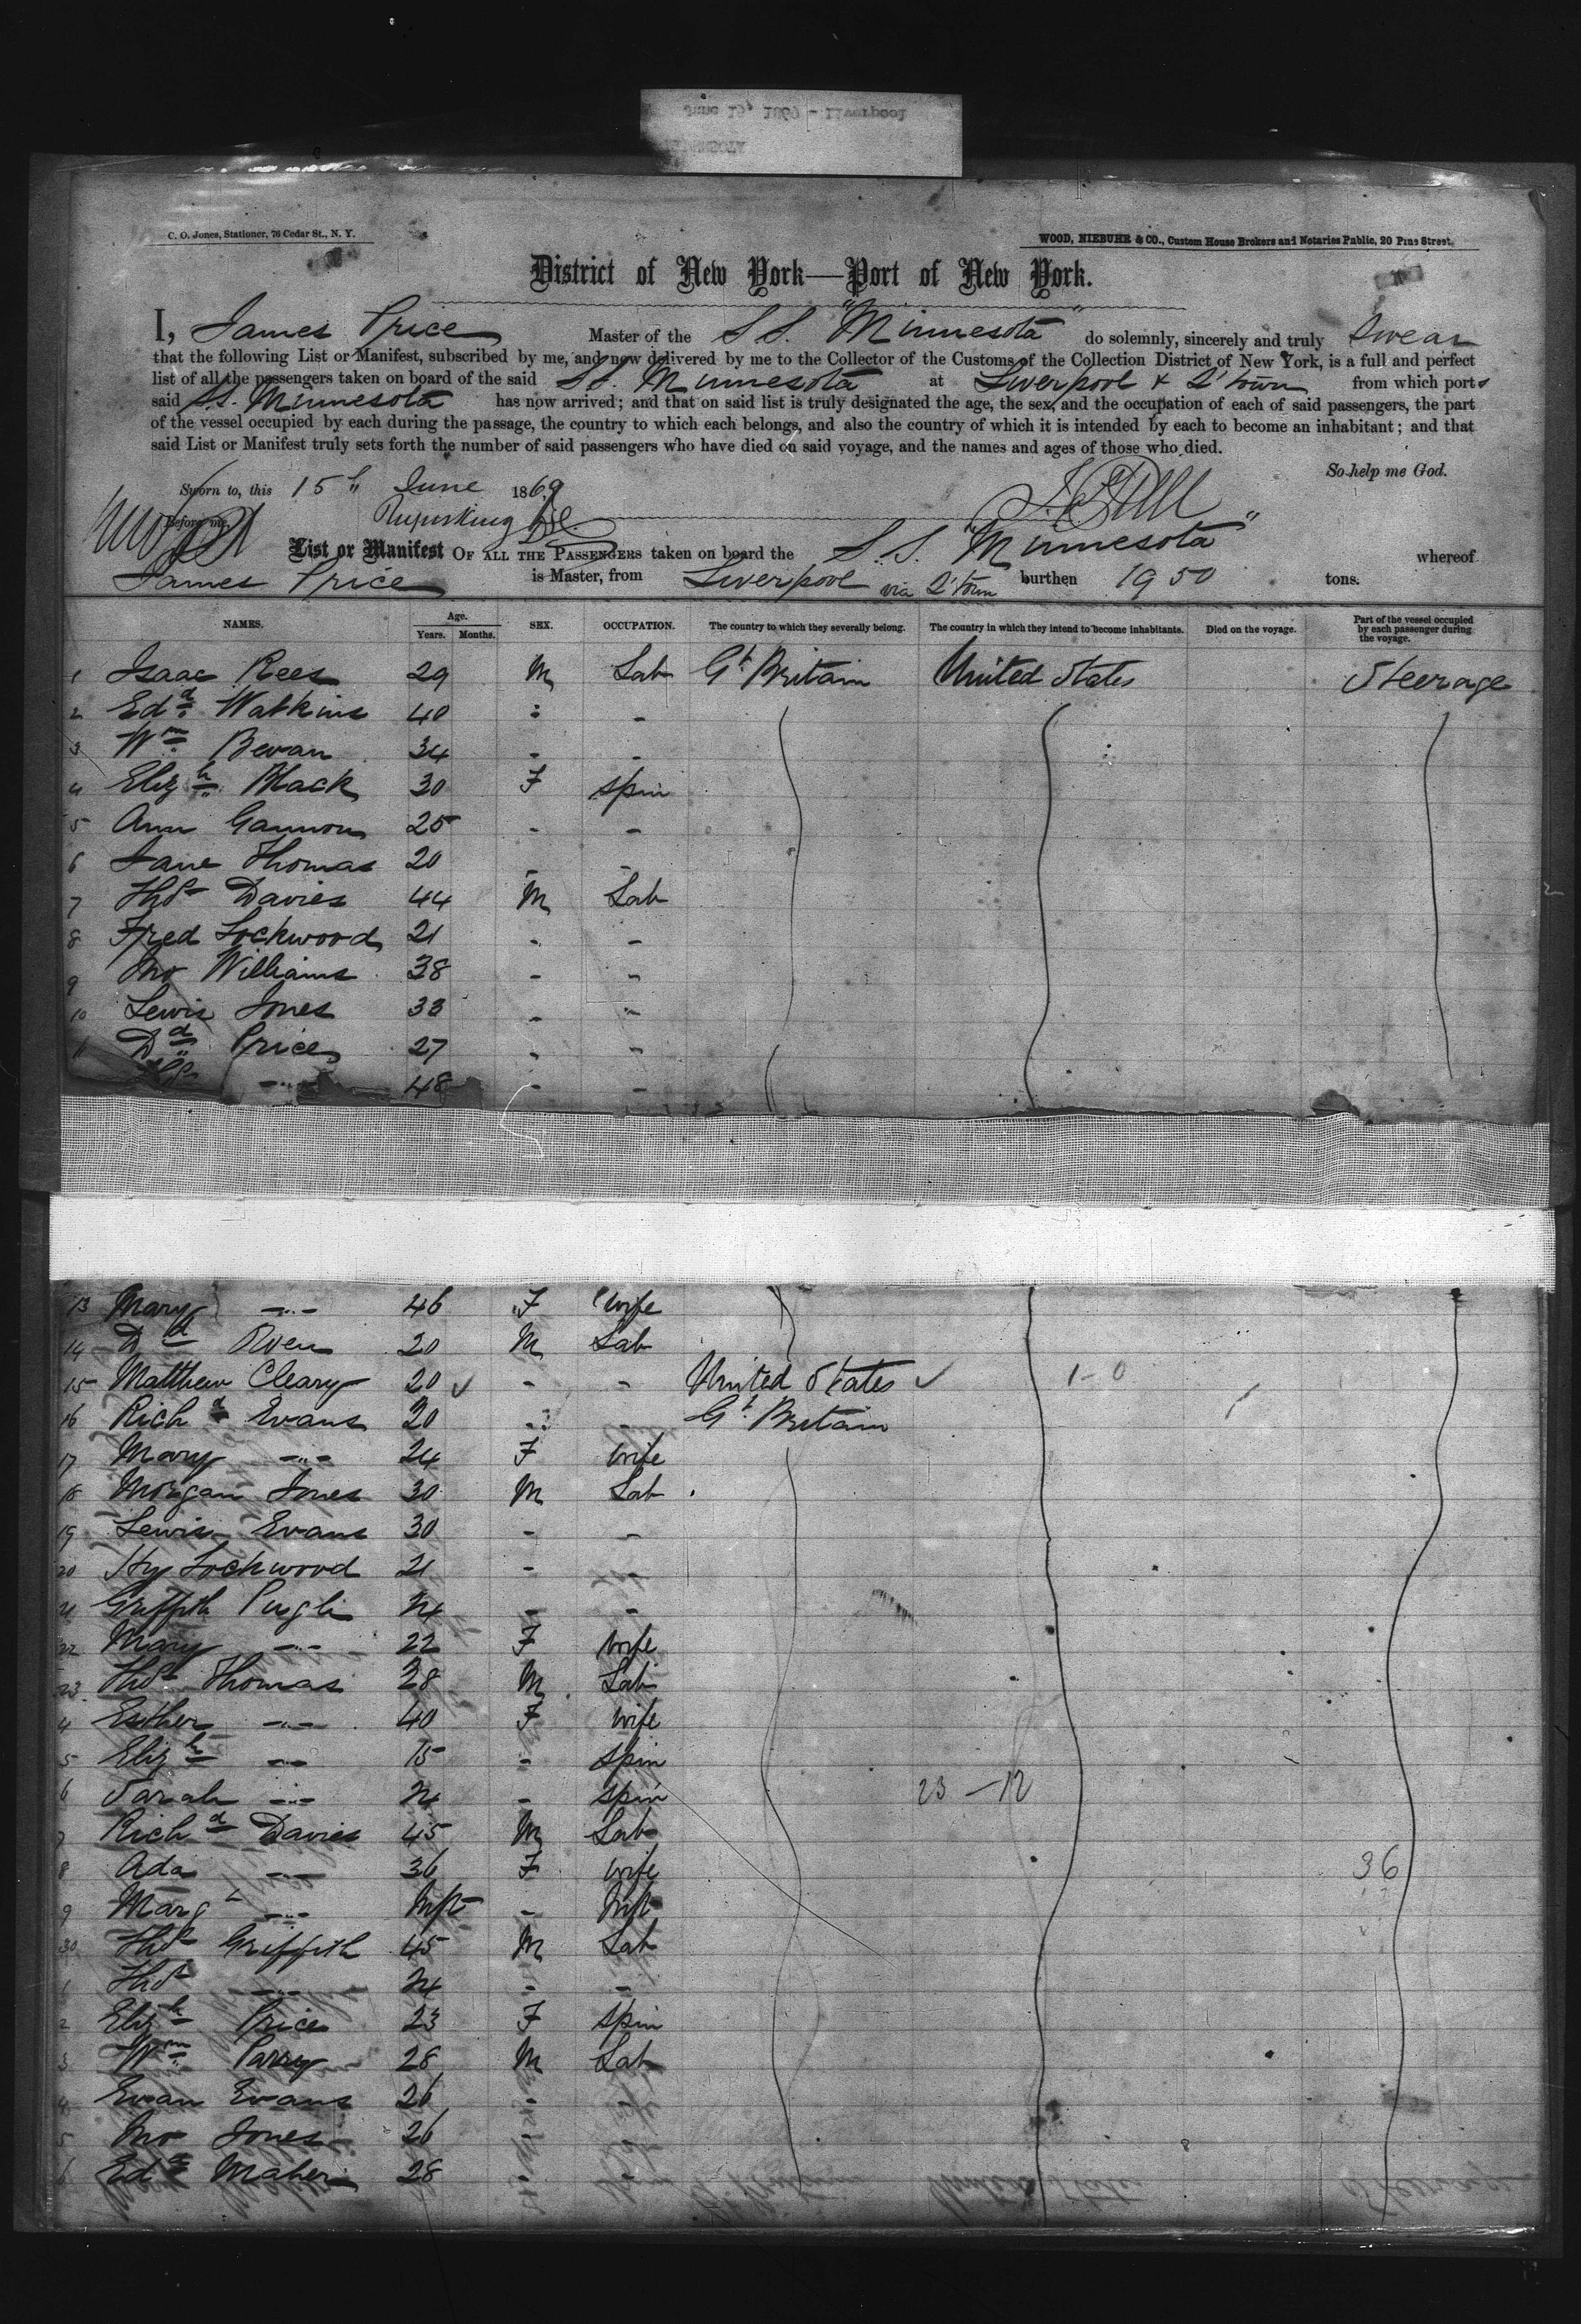 June 15, 1869 - Liverpool
MINNESOTA
C. O. Jones, Stationer, 76 Cedar St., N. Y.
WOOD, NIEBUHR & CO., Custom House Brokers and Notaries Public, 20 Pine Street.
District of New York—Port of New York.
I, James Price Master of the S S. "Minnesota" do solemnly, sincerely and truly swear
that the following List or Manifest, subscribed by me, and now delivered by me to the Collector of the Customs of the Collection District of New York, is a full and perfect
list of all the passengers taken on board of the said S.S. Minnesota at Liverpool & Q'town from which ports
said S.S. Minnesota has now arrived; and that on said list is truly designated the age, the sex, and the occupation of each of said passengers, the part
of the vessel occupied by each during the passage, the country to which each belongs, and also the country of which it is intended by each to become an inhabitant; and that
said List or Manifest truly sets forth the number of said passengers who have died on said voyage, and the names and ages of those who died.
So help me God.
Sworn to, this 15th June 1869
Before me,
List or Manifest OF ALL THE PASSENGERS taken on board the S. S. "Minnesota" whereof
James Price is Master, from Liverpool via Q'town burthen 1950 tons.
NAMES. Age. Years. Months. SEX. OCCUPATION. The country to which they severally belong. The country in which they intend to become inhabitants. Died on the voyage. Part of the vessel occupied by each passenger during the voyage.
1 Isaac Rees 29 M Lab Gt. Britain United States Steerage
2 Edd. Watkins 40 " -
3 Wm Bevan 34 - -
4 Elizh Black 30 F spin
5 Ann Gannon 25 - -
6 Jane Thomas 20 - -
7 Thos Davies 44 M Lab
8 Fred Lockwood 21 - -
9 Jno Williams 38 - "
10 Lewis Jones 33 - "
11 Dd Price 27 - -
-"- 48 - -
13 Mary -"- 46 F wife
14 Dd Owen 20 M Lab
15 Matthew Cleary 20 ✓ - - United States ✓ 1-0
16 Richd Evans 20 - - Gt. Britain
17 Mary -"- 24 F wife
18 Morgan Jones 30 M Lab
19 Lewis Evans 30 - -
20 Hy Lockwood 21 - -
21 Griffith Pugh 24 - -
22 Mary -"- 22 F wife
23 Thos Thomas 28 M Lab
4 Esther -"- 40 F wife
5 Elizh -"- 15 - spin
6 Sarah -"- 24 - spin 23 -12
7 Richd Davies 45 M Lab
8 Ada -"- 36 F wife 36
9 Margt -"- Inft - Inft
30 Thos Griffith 45 M Lab
1 Thos -"- 24 - -
2 Elizh Price 23 F spin
3 Wm Parry 28 M Lab
4 Evan Evans 26 - -
5 Jno Jones 26 - -
6 Edd Maher 28 - -